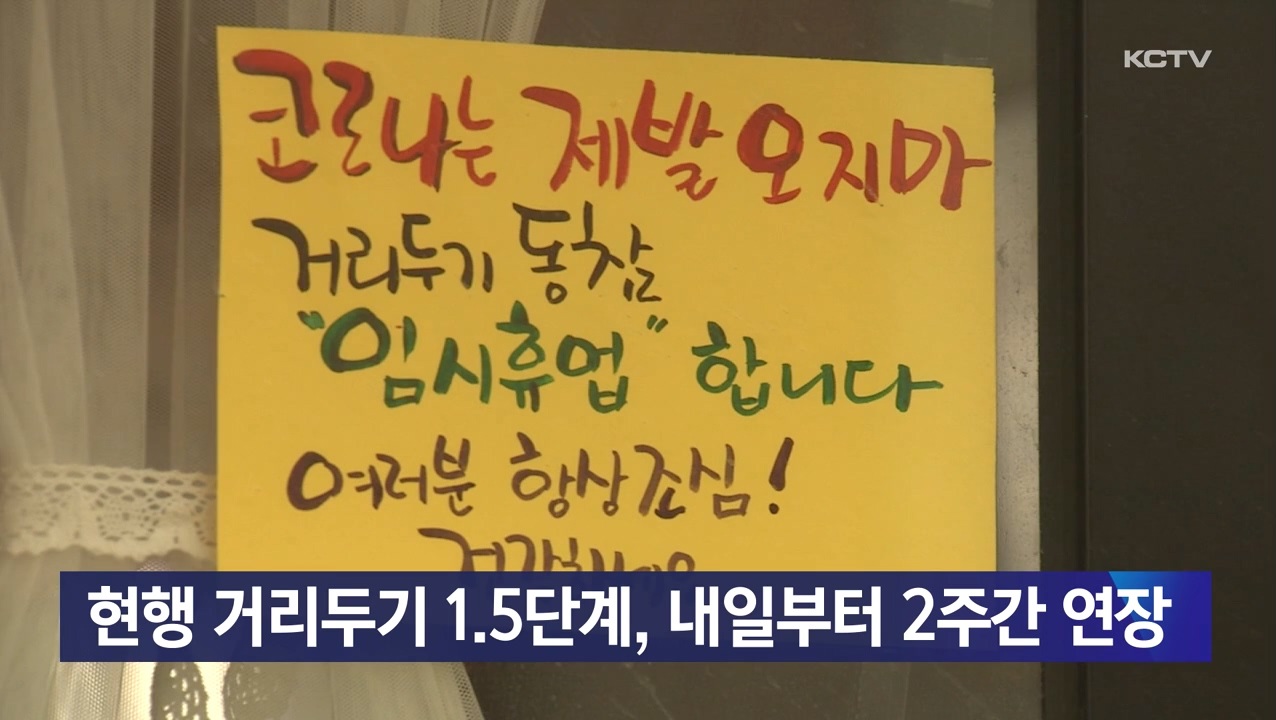 KCTV
코로나는 제발 오지마
거리두기 동참
“임시휴업” 합니다
여러분 항상조심!
현행 거리두기 1.5단계, 내일부터 2주간 연장